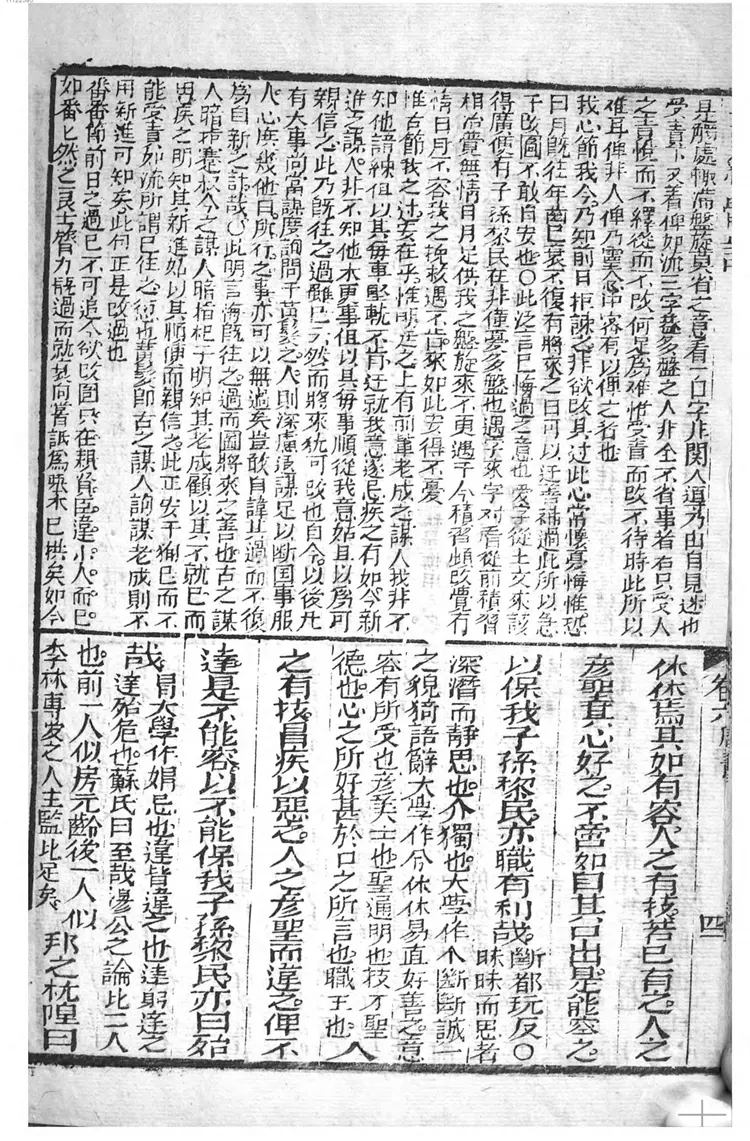 受責下又着俾如流三字甚多盤之人非全不省事者若只受人
之言憤而不繹從而不改何足為难惟受責而改不待時此所以
难耳俾非人俾乃靈念中客有以俾之者也
我心節我今乃知前日拒諫之非欲改其过此心常懷憂悔惟恐
曰月既往年齒已衰不復有將來之日可以迁善補過此所以急
子改圖不敢自安也〇此泛言已悔過之意也
得廣便有子孫黎民在非僅憂多盤也遇字來字对看從前積習
相沿費無情日月足供我之盤旋來不更遇于今積習頓改覺有
情日月不容我之挽救遇不旨來如此安得不憂
惟古節我之过安在乎惟明迁之上有前軰老成之謀人我非不
知他諳練但以其毎事堅執不肯迁就我意遂忌疾之有如今新
進之謀人非不知他未更事但以其毎事順從我意姑且以為可
親信之此乃旣往之過雖已云然而將來犹可改也自今以後凢
有大事尚當謀度詢問于黃髮之人則深慮遠謀足以断国事服
人心庶幾他日所行之事亦可以無過矣豈敢自諱其過而不復
為自新之計哉〇此明言悔旣往之過而圖將來之善也古之謀
人暗指蹇叔今之謀人暗指杞子明知其老成顧以其不就已而
忌疾之明知其新進姑以其順便而親信之此正安于徇已而不
能受責如流所謂已往之愆也黃髮即古之謀人詢謀老成則不
用新進可知矣此句正是改過也
番番節前日之過已不可追今欲改圖只在親賢臣遠小人而已
如番七然之良士膂力旣過而就其向嘗詆為墓木已拱矣如今
卷六周書
四
休休焉其如有容人之有技若已有之人之
彥聖其心好之不啻如自其口出是能容之
以保我子孫黎民亦職有利哉斷都玩反〇
昧昧而思者
深潛而靜思也介獨也大學作个斷斷誠一
之貌猗語辭大學作兮休休易直好善之意
容有所受也彥美士也聖通明也技才聖
德也心之所好甚於口之所言也職主也人
之有技冒疾以惡之人之彥聖而違之俾不
達是不能容以不能保我子孫黎民亦曰殆
哉
冒大學作媢忌也違背違之也達窮達之
達殆危也蘇氏曰至哉穆公之論此二人
也前一人似房元齡後一人似
李林甫後之人主監此足矣
邦之杌隉曰